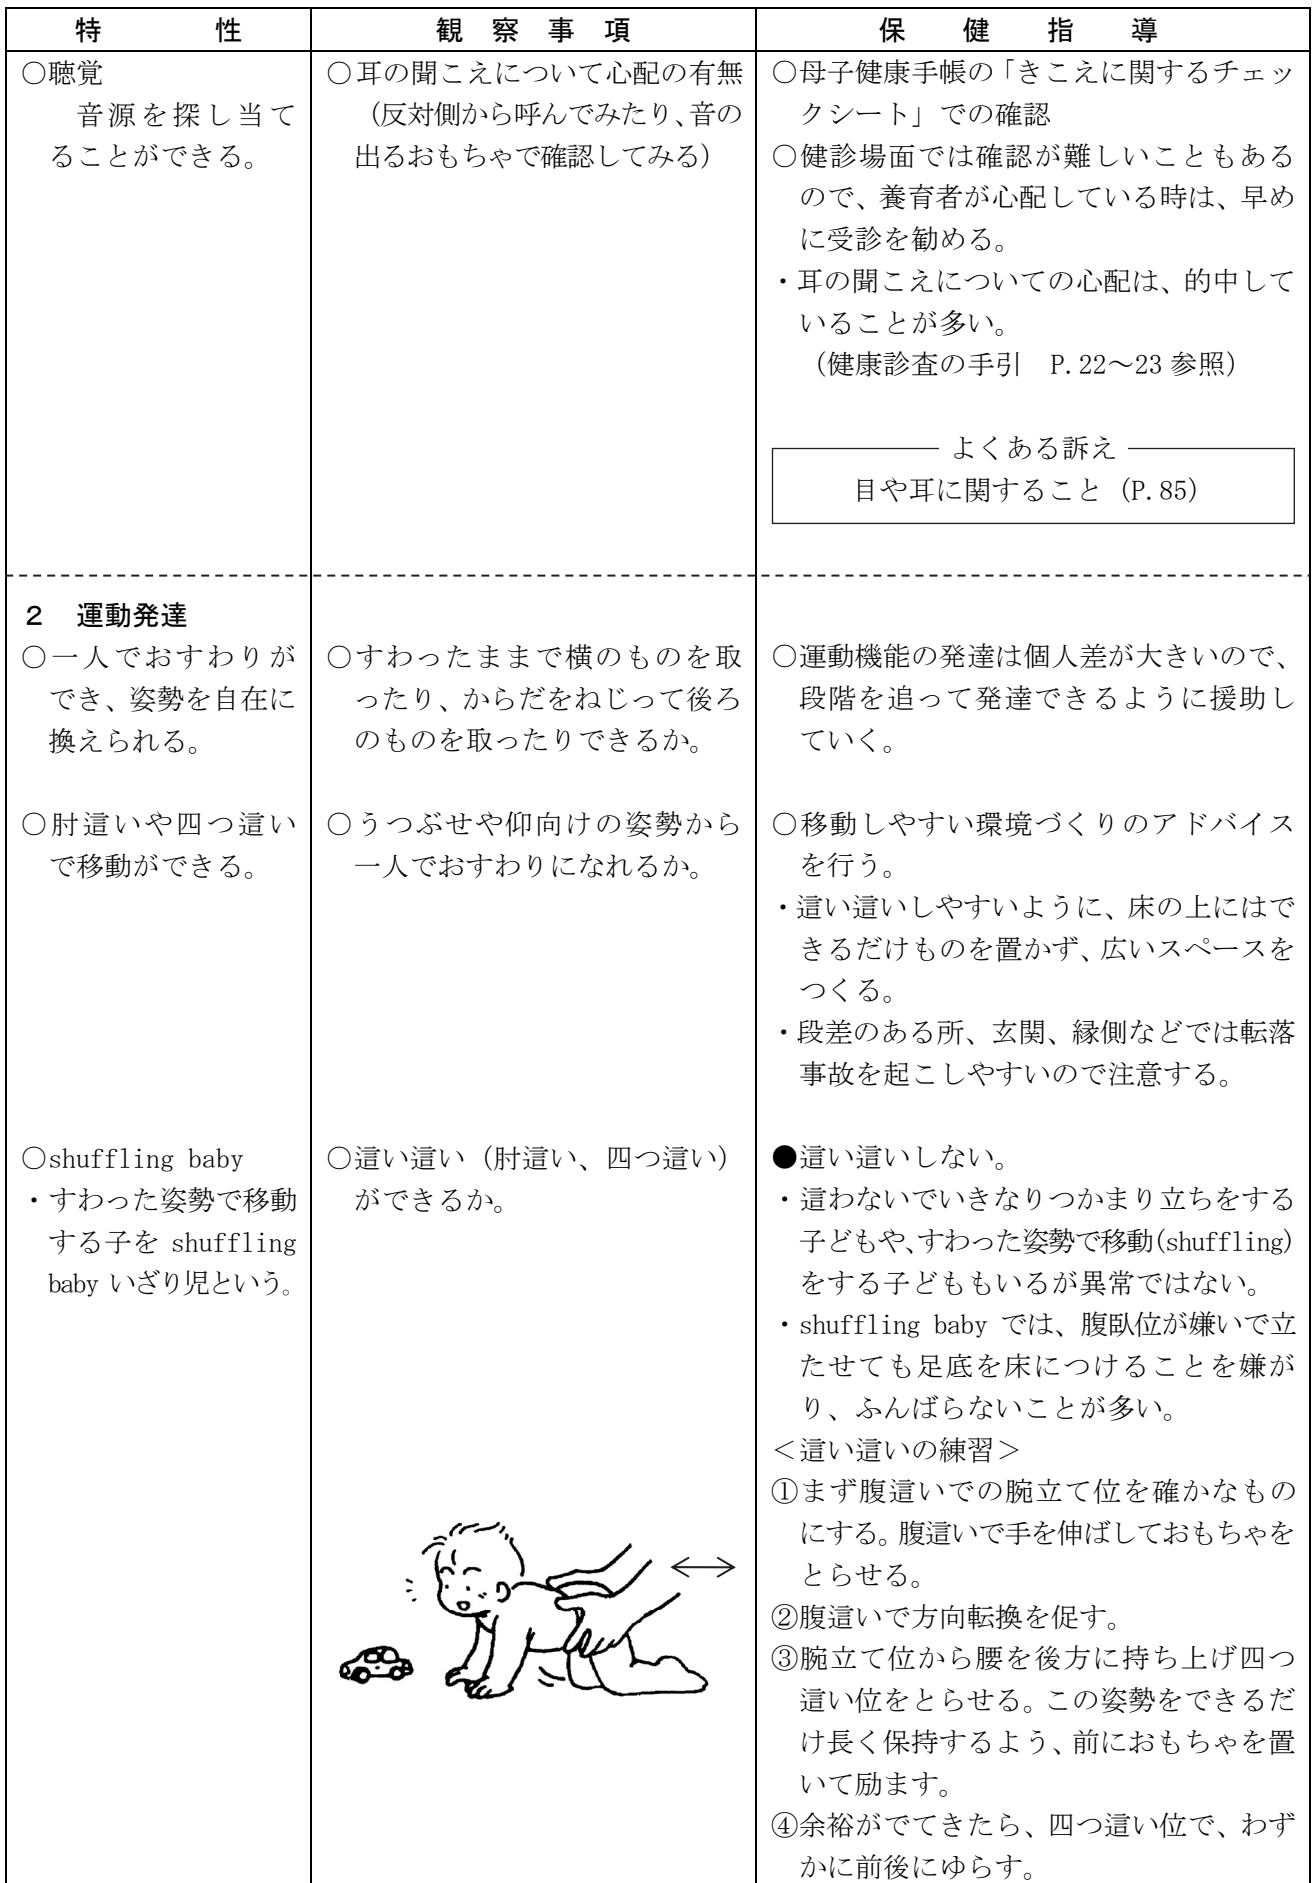 特性
観察事項
保健指導
○聴覚
音源を探し当て
ることができる。
○耳の聞こえについて心配の有無
（反対側から呼んでみたり、音の
出るおもちゃで確認してみる）
○母子健康手帳の「きこえに関するチェッ
クシート」での確認
○健診場面では確認が難しいこともある
ので、養育者が心配している時は、早め
に受診を勧める。
・耳の聞こえについての心配は、的中して
いることが多い。
（健康診査の手引　P.22～23 参照）
よくある訴え
目や耳に関すること（P.85）
２　運動発達
○一人でおすわりが
でき、姿勢を自在に
換えられる。
○すわったままで横のものを取
ったり、からだをねじって後ろ
のものを取ったりできるか。
○運動機能の発達は個人差が大きいので、
段階を追って発達できるように援助し
ていく。
○肘這いや四つ這い
で移動ができる。
○うつぶせや仰向けの姿勢から
一人でおすわりになれるか。
○移動しやすい環境づくりのアドバイス
を行う。
・這い這いしやすいように、床の上にはで
きるだけものを置かず、広いスペースを
つくる。
・段差のある所、玄関、縁側などでは転落
事故を起こしやすいので注意する。
○shuffling baby
・すわった姿勢で移動
する子を shuffling
baby いざり児という。
○這い這い（肘這い、四つ這い）
ができるか。
●這い這いしない。
・這わないでいきなりつかまり立ちをする
子どもや、すわった姿勢で移動(shuffling)
をする子どももいるが異常ではない。
・shuffling baby では、腹臥位が嫌いで立
たせても足底を床につけることを嫌が
り、ふんばらないことが多い。
＜這い這いの練習＞
①まず腹這いでの腕立て位を確かなもの
にする。腹這いで手を伸ばしておもちゃを
とらせる。
②腹這いで方向転換を促す。
③腕立て位から腰を後方に持ち上げ四つ
這い位をとらせる。この姿勢をできるだ
け長く保持するよう、前におもちゃを置
いて励ます。
④余裕がでてきたら、四つ這い位で、わず
かに前後にゆらす。